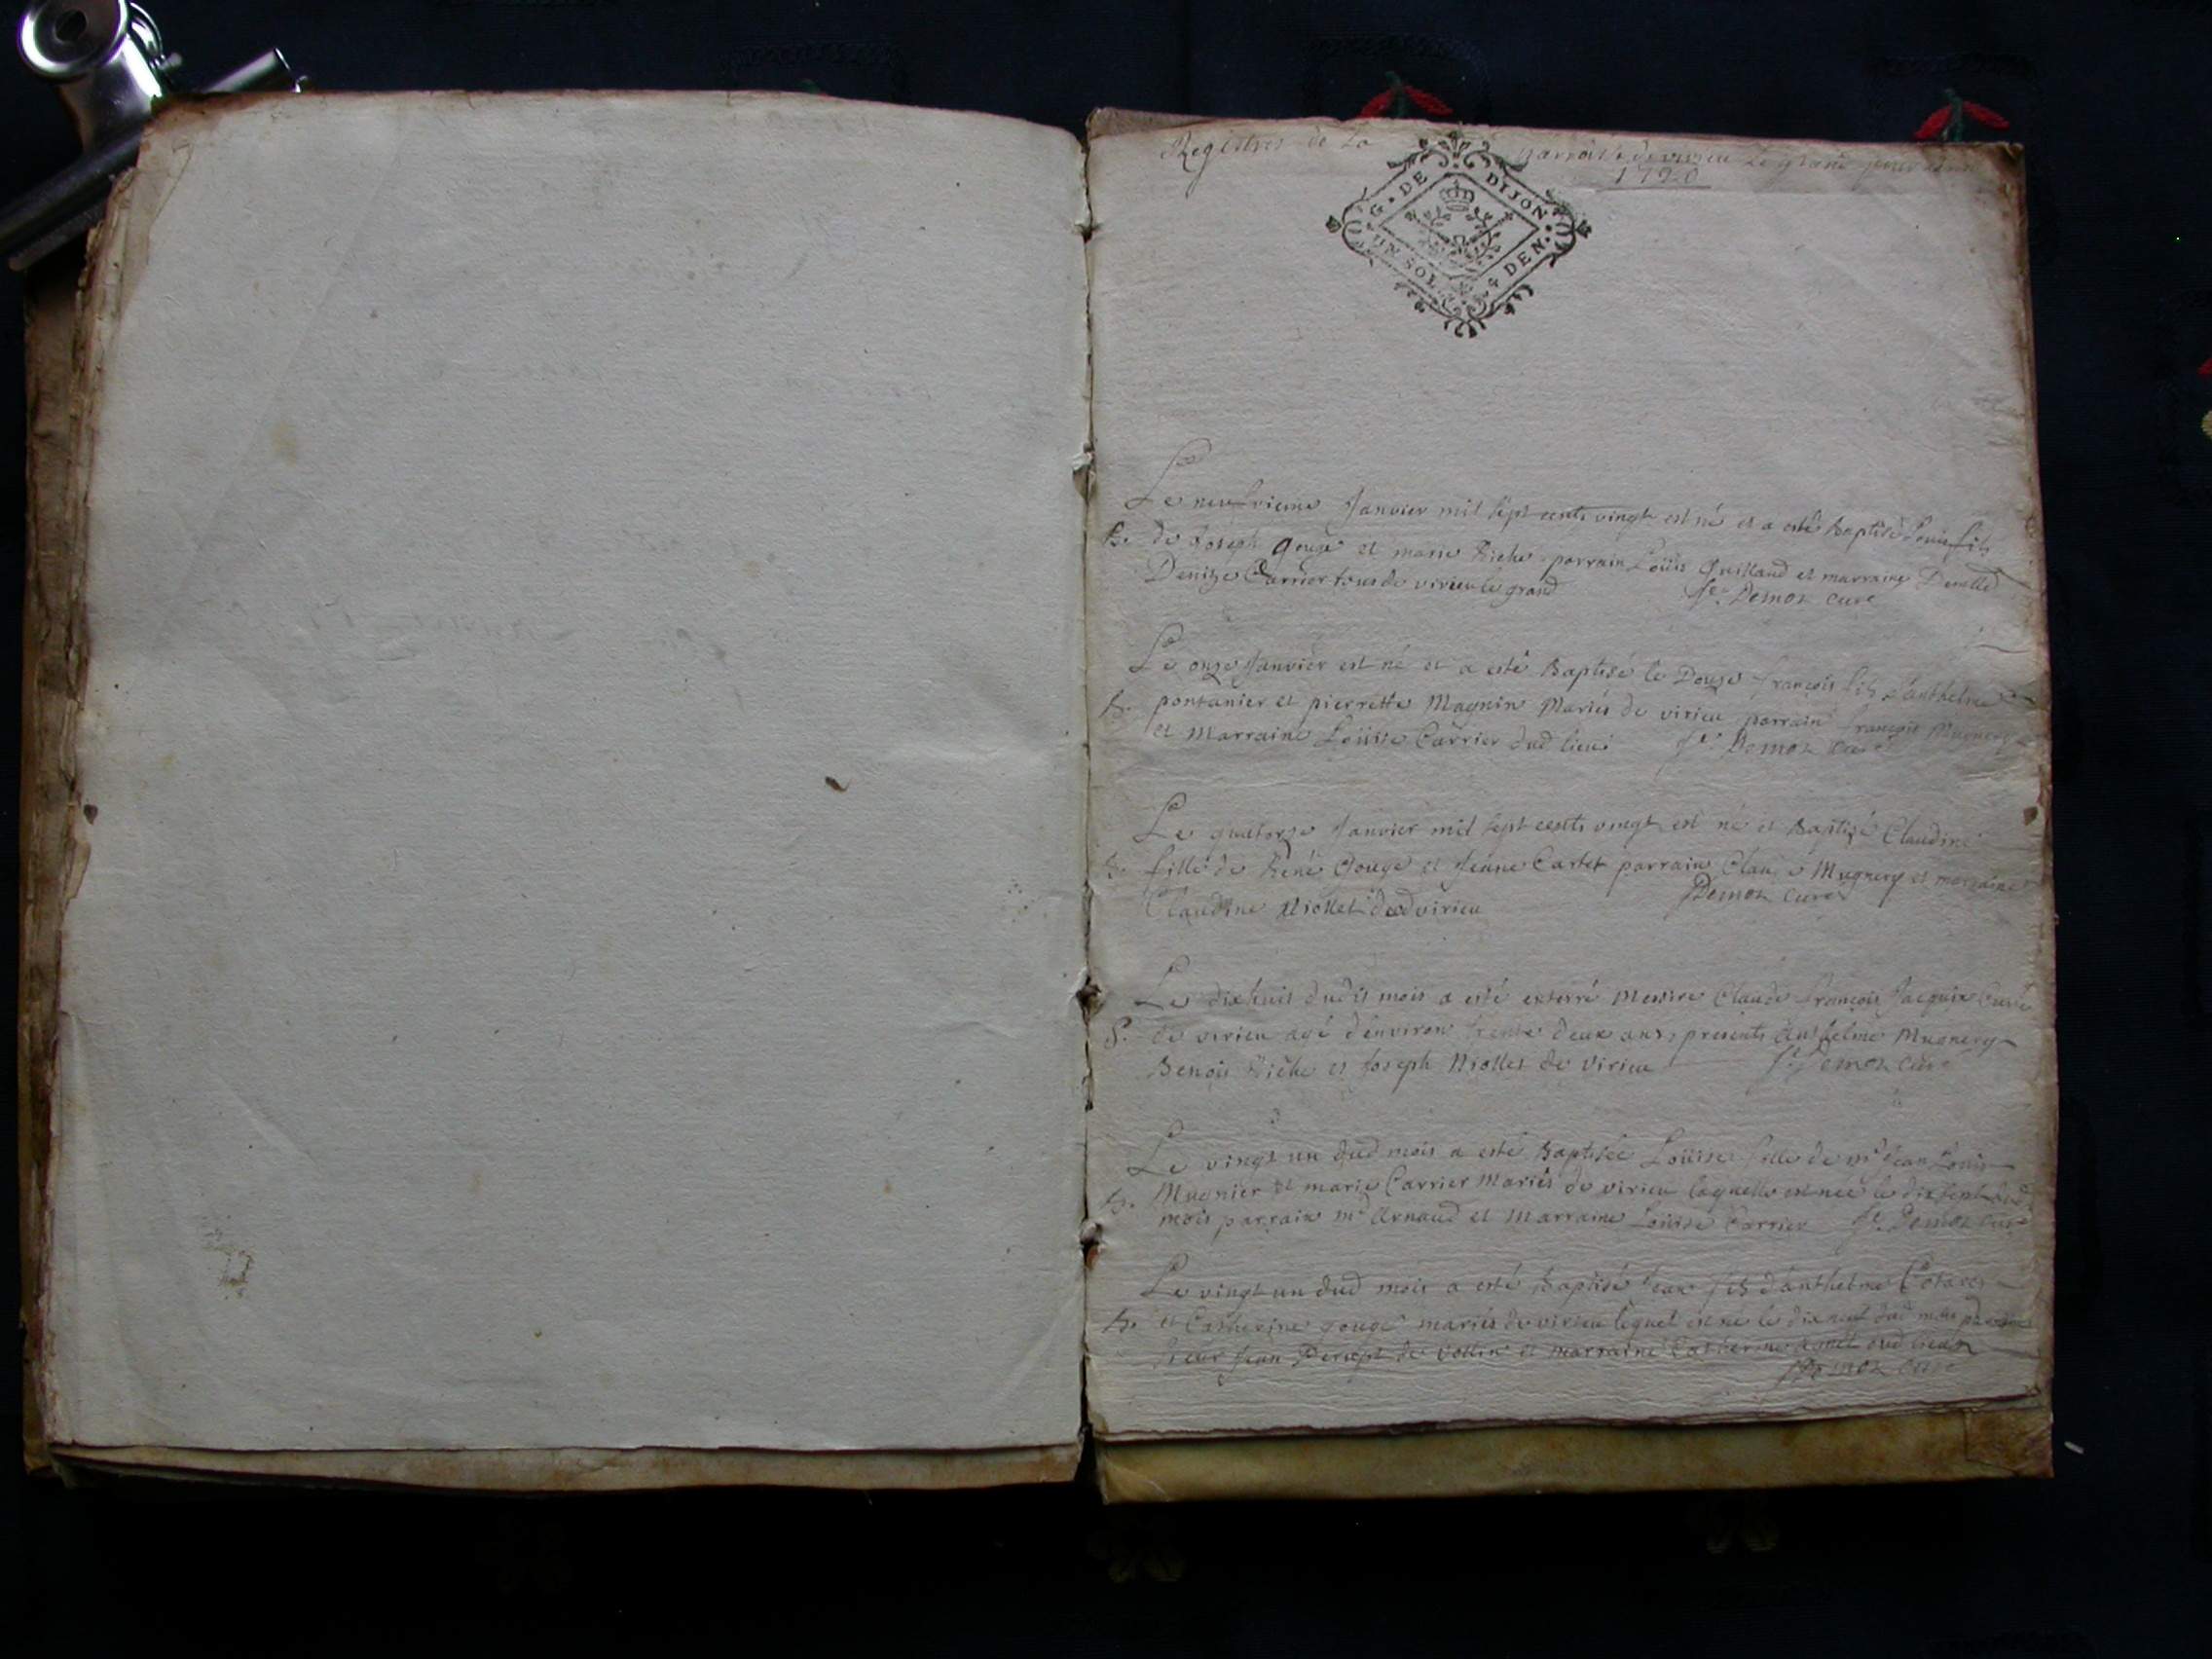 Registres de La parroisse de virieu Le grand pour
1720
G. DE DIJON
UN SOL 4 DEN.
Le neufvieme Janvier mil sept cents vingt est né et a esté Baptisé Louis fils
B. de Joseph gouge et marie Riche parrain Loüis Guilland et marraine
Denize Carrier tous de virieu le grand Demoz curé
Le onze Janvier est né et a esté Baptisé le Douze françois fils d'anthelme
B. pontanier et pierrette Magnin Mariés de virieu parrain françois Mugnery
et Marraine Loüise Carrier dud lieu Demoz curé
Le quatorze Janvier mil sept cents vingt est né et Baptisé Claudine
B. fille de René Gouge et Jeanne Cartet parrain Claude Mugnery et marraine
Claudine Niollet dud virieu Demoz curé
Le dixhuit dudit mois a esté enterré Messire Claude françois Jacquin Curé
S. de virieu agé d'environ trente deux ans, presents anthelme Mugnery
Benoit Riche et Joseph Niollet de virieu Demoz curé
Le vingt un dud mois a esté Baptisée Loüise fille de mr Jean Louis
B. Mugnier et marie Carrier Mariés de virieu laquelle est née le dixsept dud
mois parrain mr Arnaud et Marraine Loüise Carrier Demoz curé
Le vingt un dud mois a esté Baptisé Jean fils d'anthelme
B. et Catherine gouge mariés de virieu lequel est né le dixneuf dud mois parrain
Sieur Jean de Vollin et marraine Catherine dud lieu
Demoz curé